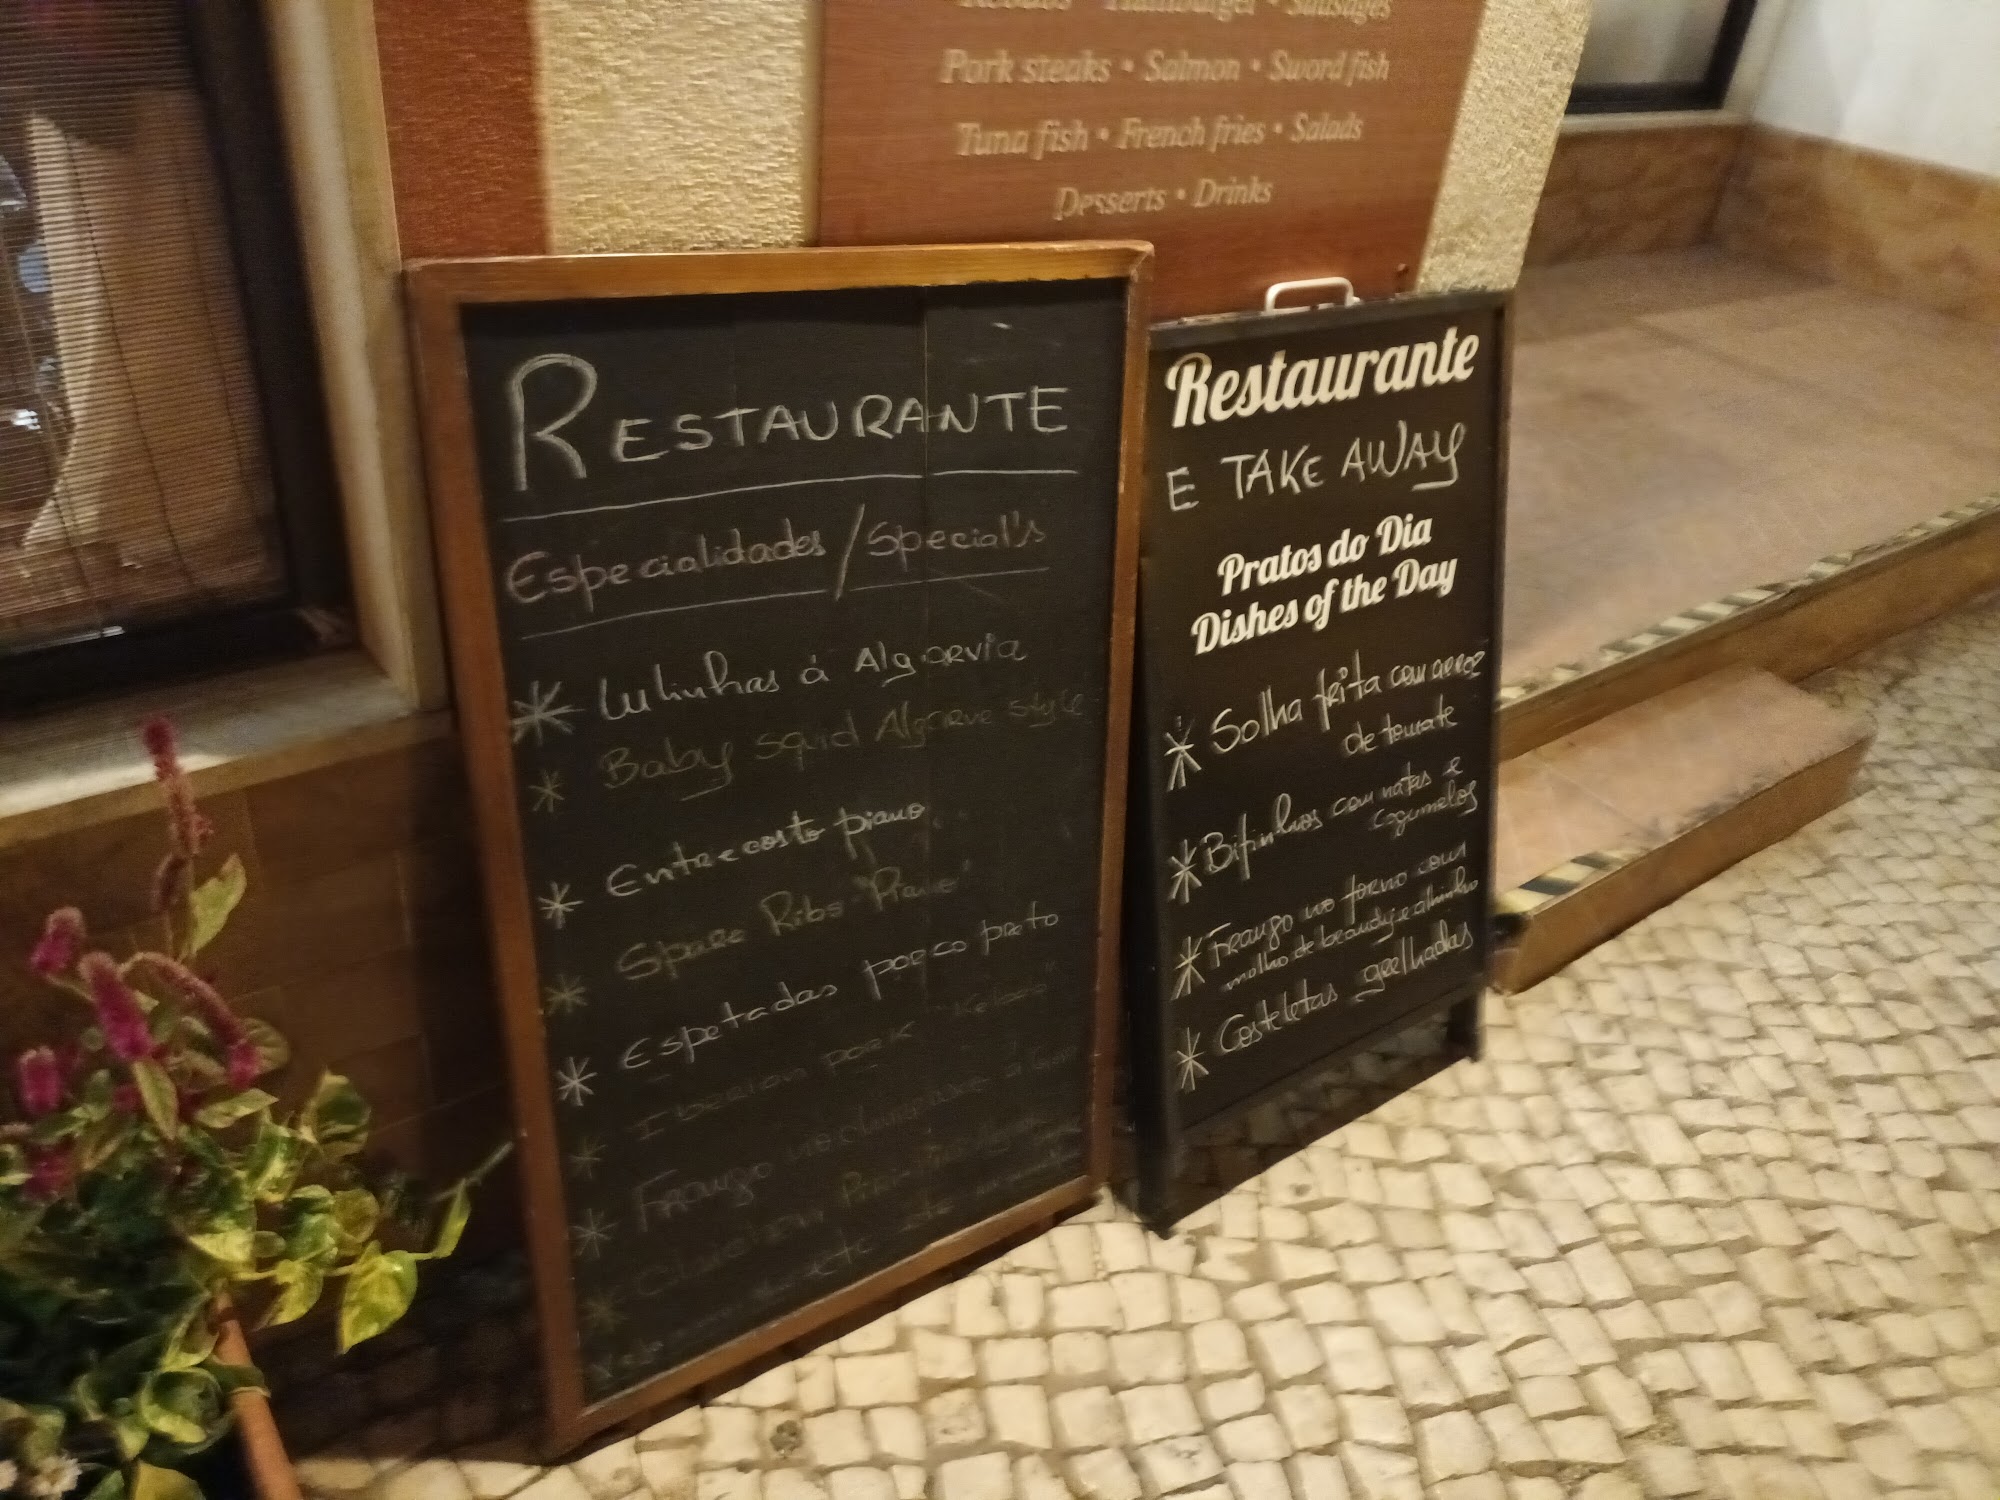 Kebabs • Hamburger • Sausages
Pork steaks • Salmon • Sword fish
Tuna fish • French fries • Salads
Desserts • Drinks
RESTAURANTE
Especialidades / Special's
Lulinhas á Algarvia
Baby squid Algarve style
Entrecosto piano
Spare Ribs "Piano"
Espetadas porco preto
Iberian pork
Frango no churrasco á
Chicken Piri-Piri
Restaurante
E TAKE AWAY
Pratos do Dia
Dishes of the Day
Solha frita com arroz
de tomate
Bifinhos com natas e
cogumelos
Frango no forno com
molho de brandy e alhinho
Costeletas grelhadas